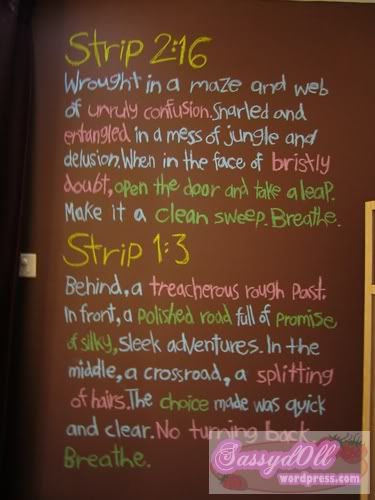 Strip 2:16
Wrought in a maze and web
of unruly confusion. Snarled and
entangled in a mess of jungle and
delusion. When in the face of bristly
doubt, open the door and take a leap.
Make it a clean sweep. Breathe.
Strip 1:3
Behind, a treacherous rough past.
In front, a polished road full of promise
of silky, sleek adventures. In the
middle, a crossroad, a splitting
of hairs. The choice made was quick
and clear. No turning back.
Breathe.
Sassyd0ll
wordpress.com